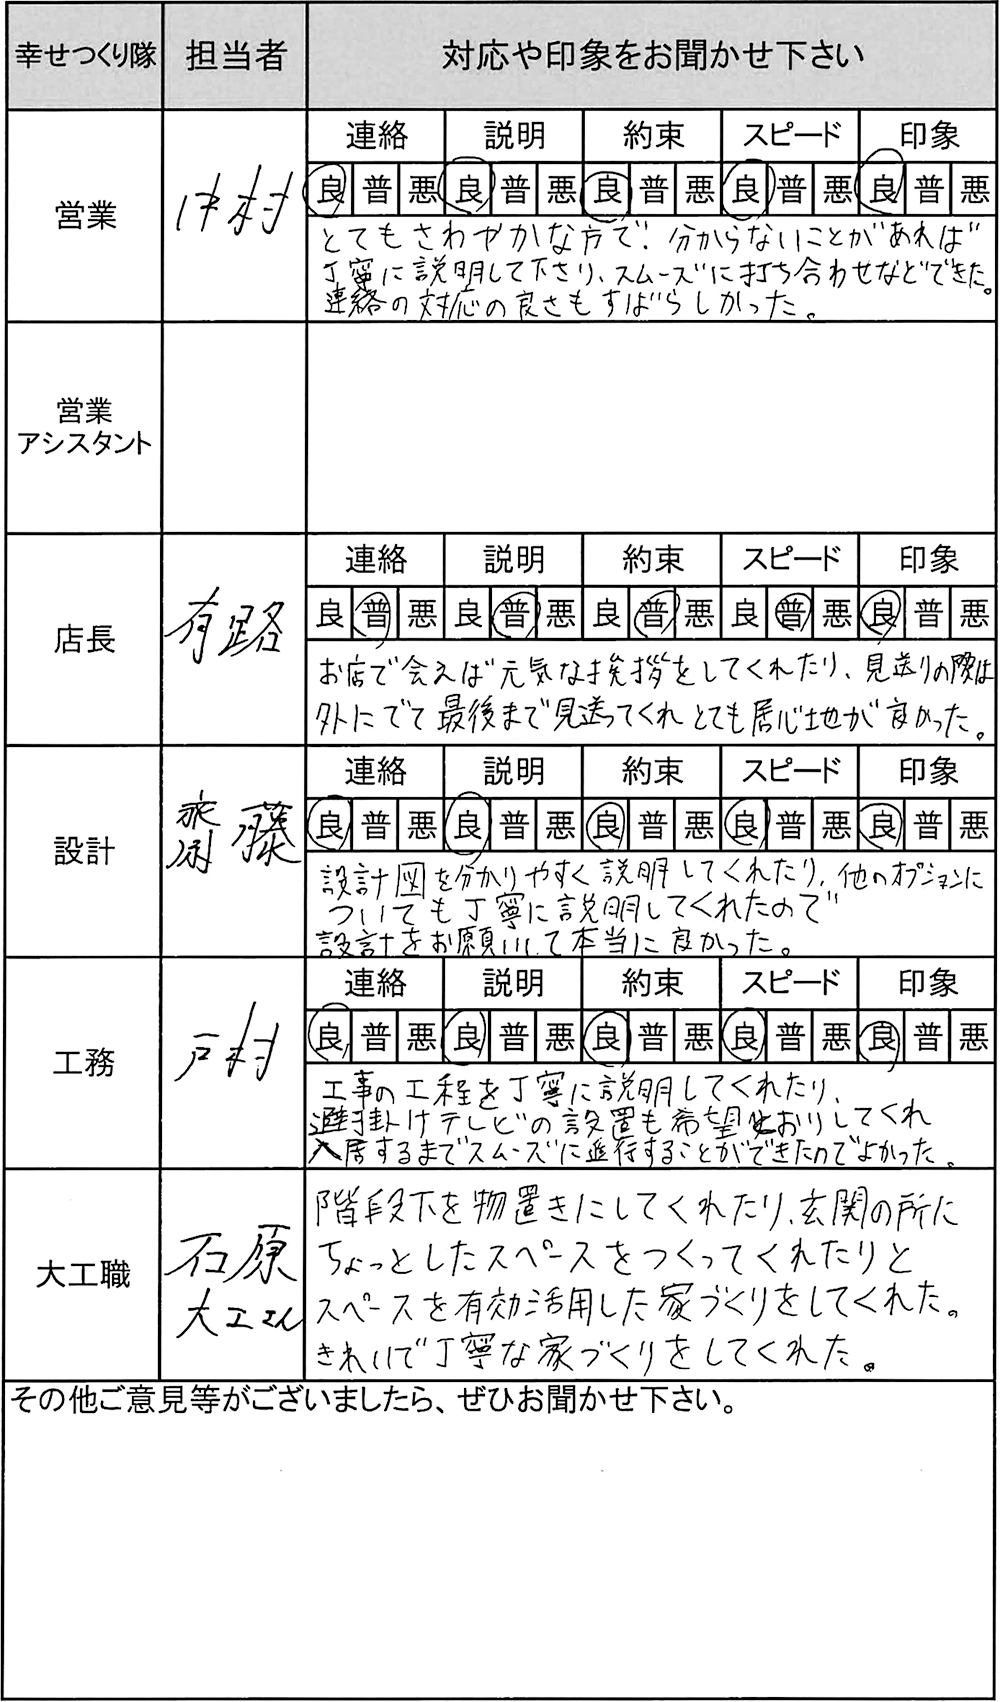 幸せつくり隊 担当者 対応や印象をお聞かせ下さい
連絡 説明 約束 スピード 印象
営業 中村
良 普 悪 良 普 悪 良 普 悪 良 普 悪 良 普 悪
とてもさわやかな方で、分からないことがあれば
丁寧に説明して下さり、スムーズに打ち合わせなどできた。
連絡の対応の良さもすばらしかった。
営業
アシスタント
連絡 説明 約束 スピード 印象
店長 有路
良 普 悪 良 普 悪 良 普 悪 良 普 悪 良 普 悪
お店で会えば元気な挨拶をしてくれたり、見送りの際は
外にでて最後まで見送ってくれとても居心地が良かった。
連絡 説明 約束 スピード 印象
設計 齋藤
良 普 悪 良 普 悪 良 普 悪 良 普 悪 良 普 悪
設計図を分かりやすく説明してくれたり、他のオプションに
ついても丁寧に説明してくれたので
設計をお願いして本当に良かった。
連絡 説明 約束 スピード 印象
工務 戸村
良 普 悪 良 普 悪 良 普 悪 良 普 悪 良 普 悪
工事の工程を丁寧に説明してくれたり、
壁掛けテレビの設置も希望どおりしてくれ
入居するまでスムーズに進行することができたのでよかった。
大工職 石原
大工さん
階段下を物置きにしてくれたり、玄関の所に
ちょっとしたスペースをつくってくれたりと
スペースを有効活用した家づくりをしてくれた。
きれいで丁寧な家づくりをしてくれた。
その他ご意見等がございましたら、ぜひお聞かせ下さい。